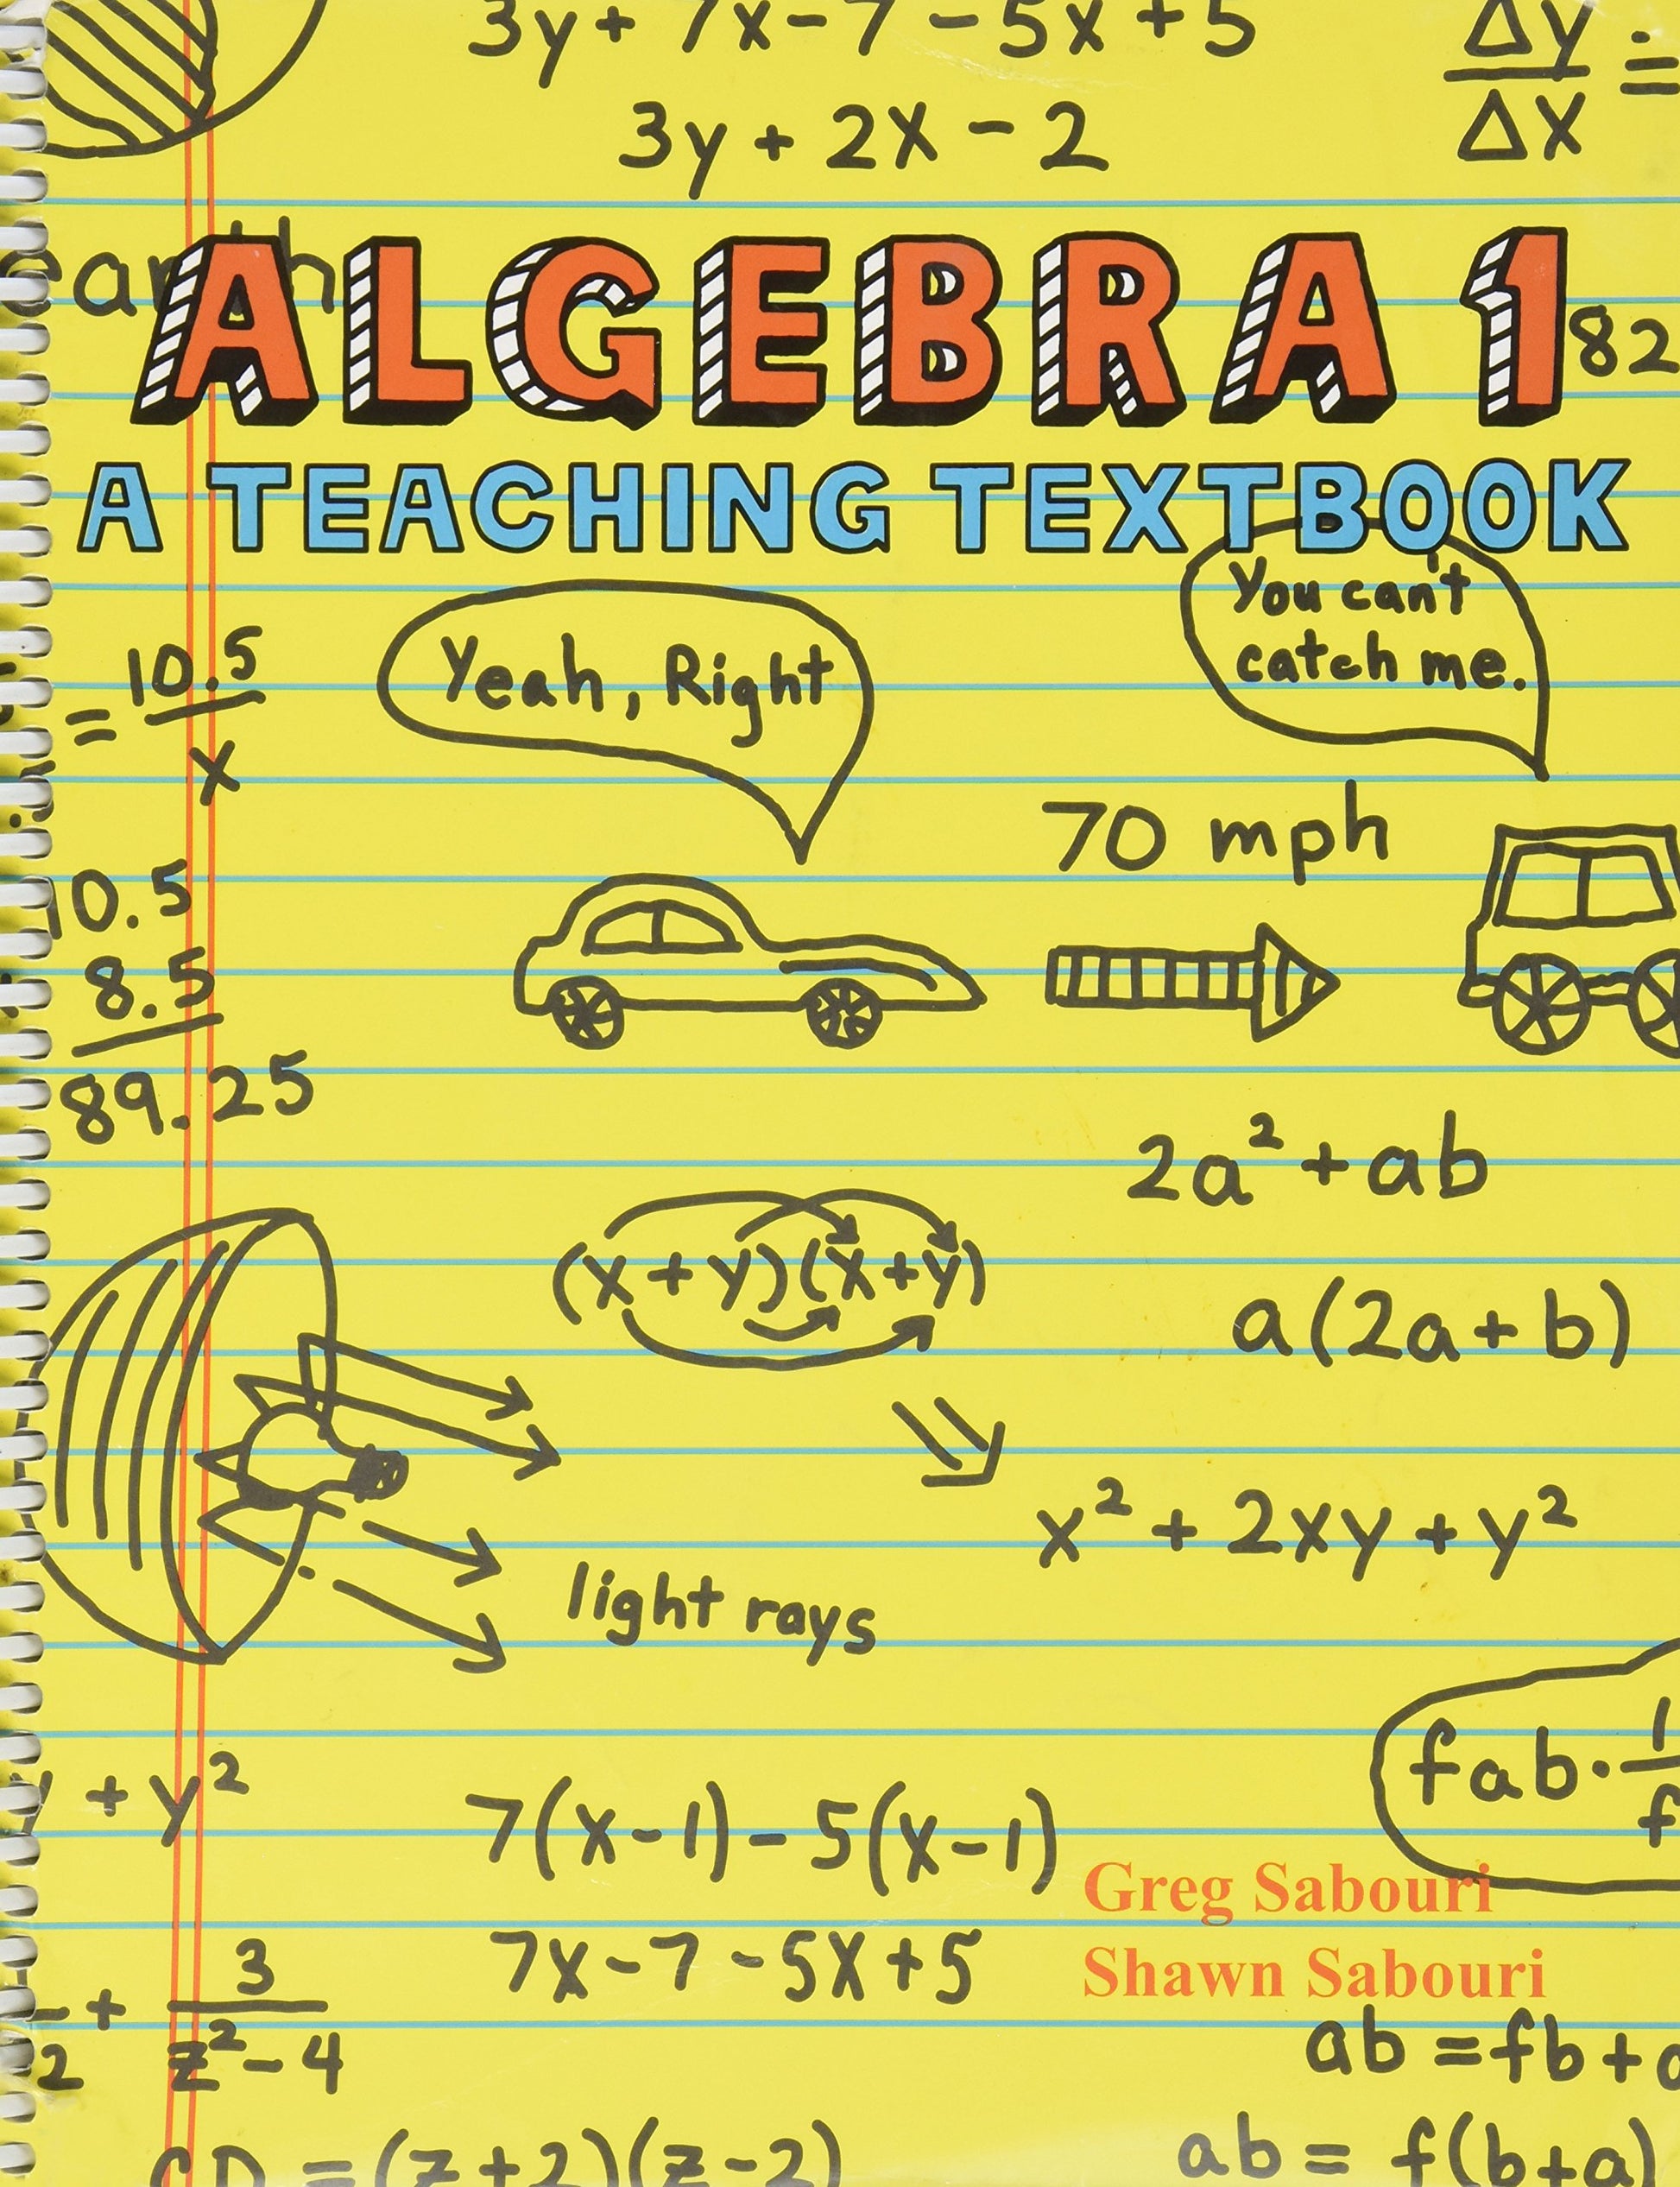 3y + 7x - 7 - 5x + 5
Δy =
Δx
3y + 2x - 2
ALGEBRA 1
82
A TEACHING TEXTBOOK
You can't
catch me.
Yeah, Right
= 10.5
x
70 mph
10.5
8.5
89.25
2a² + ab
(x + y)(x + y)
a(2a + b)
x² + 2xy + y²
light rays
fab · 1
f
+ y²
7(x - 1) - 5(x - 1)
Greg Sabouri
7x - 7 - 5x + 5
Shawn Sabouri
+ 3
2 z² - 4
ab = fb +
CD = (z + 2)(z - 2)
ab = f(b + a)